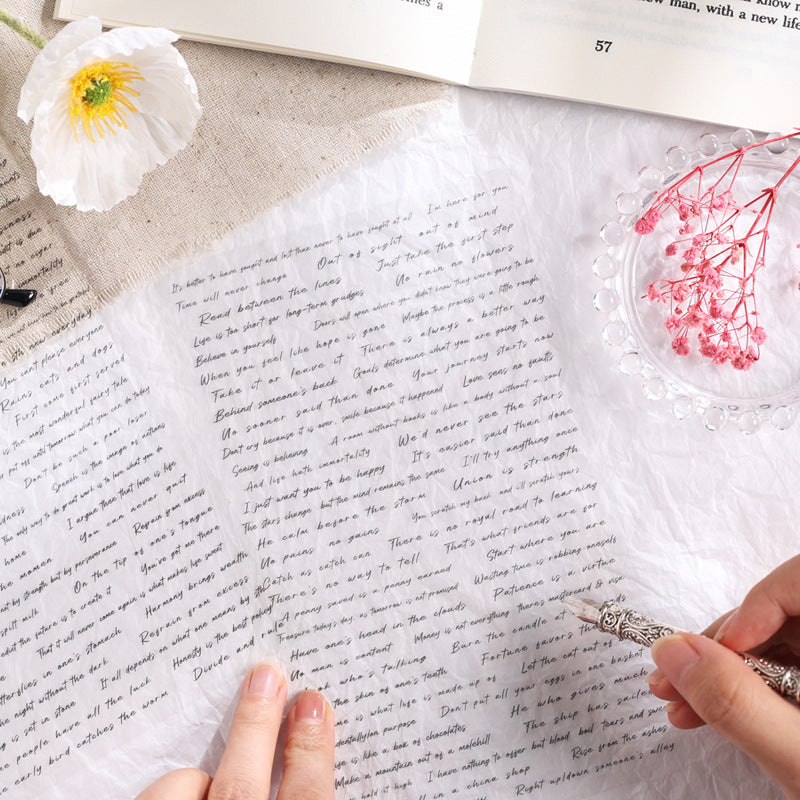 57
know m
ew man, with a new life
It's better to have fought and lost than never to have fought at all I'm here for you
Time will never change Out of sight out of mind
Read between the lines Just take the first step
Life is too short for long-term grudges No rain no flowers
Believe in yourself Doors will open where you didn't know they were going to be
When you feel like hope is gone Maybe the process is a little rough
Take it or leave it There is always a better way
Behind someone's back Goals determine what you are going to be
No sooner said than done Your journey starts now
Don't cry because it is over, smile because it happened Love sees no faults
Seeing is believing A room without books is like a body without a soul
And life hath immortality We'd never see the stars
I just want you to be happy It's easier said than done
The stars change but the mind remains the same I'll try anything once
He calm before the storm Union is strength
No pains no gains You scratch my back and i'll scratch yours
Catch as catch can There is no royal road to learning
There's no way to tell That's what friends are for
A penny saved is a penny earned Start where you are
Treasure today's day, as tomorrow is not promised Wasting time is robbing oneself
Have one's head in the clouds Patience is a virtue
No man is content Money is not everything there's mastercard & visa
who's talking Burn the candle at
the skin of one's teeth Fortune favors the
me is what life is made up of Let the cat out of
on purpose Don't put all your eggs in one basket
life is like a box of chocolates He who gives
Make a mountain out of a molehill The ship has sailed
hold it high I have nothing to offer but blood boil tears and
ll in a china shop Rise from the ashes
Right up/down someone's alley
new everyday
You can't please everyone
Rains cats and dogs
First come first served
is the most wonderful fairy tale
put off until tomorrow what you can do today
Don't be such a poor loser
Speech is the image of actions
The only way to do great work is to love what you do
I argue then that love is life
home You can never quit
he moment Refrain from excess
not by strength but by perseverance On the tip of one's tongue
spilt milk You've got me there
edict the future is to create it That it will never come again is what makes life sweet
Butterflies in one's stomach Harmony brings wealth
the night without the dark Refrain from excess
ng is set in stone It all depends on what one means by
people have all the luck Honesty is the best policy
early bird catches the worm Divide and rule